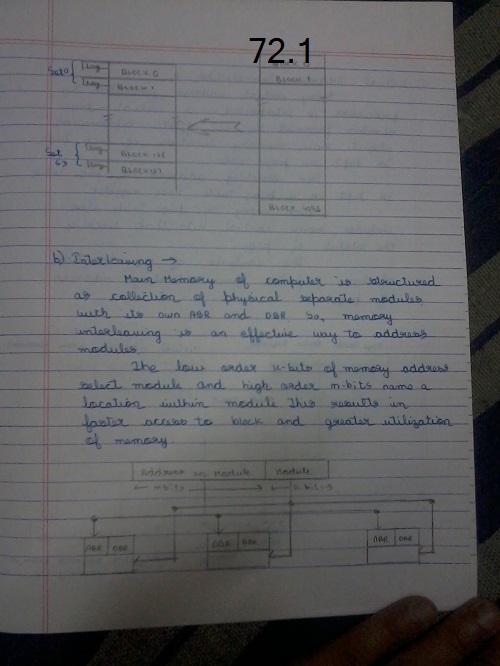 72.1
Set 0
Tag
BLOCK 0
Tag
BLOCK 1
BLOCK 1
Set 63
Tag
BLOCK 126
Tag
BLOCK 127
BLOCK 4095
b) Interleaving →
Main Memory of computer is structured
as collection of physical separate modules
with its own ABR and DBR So, memory
interleaving is an effective way to address
modules.
The low order k-bits of memory address
select module and high order m-bits name a
location within module This results in
faster access to block and greater utilization
of memory.
Address in Module Module
← m bits → ← k bits →
ABR DBR ABR DBR ABR DBR